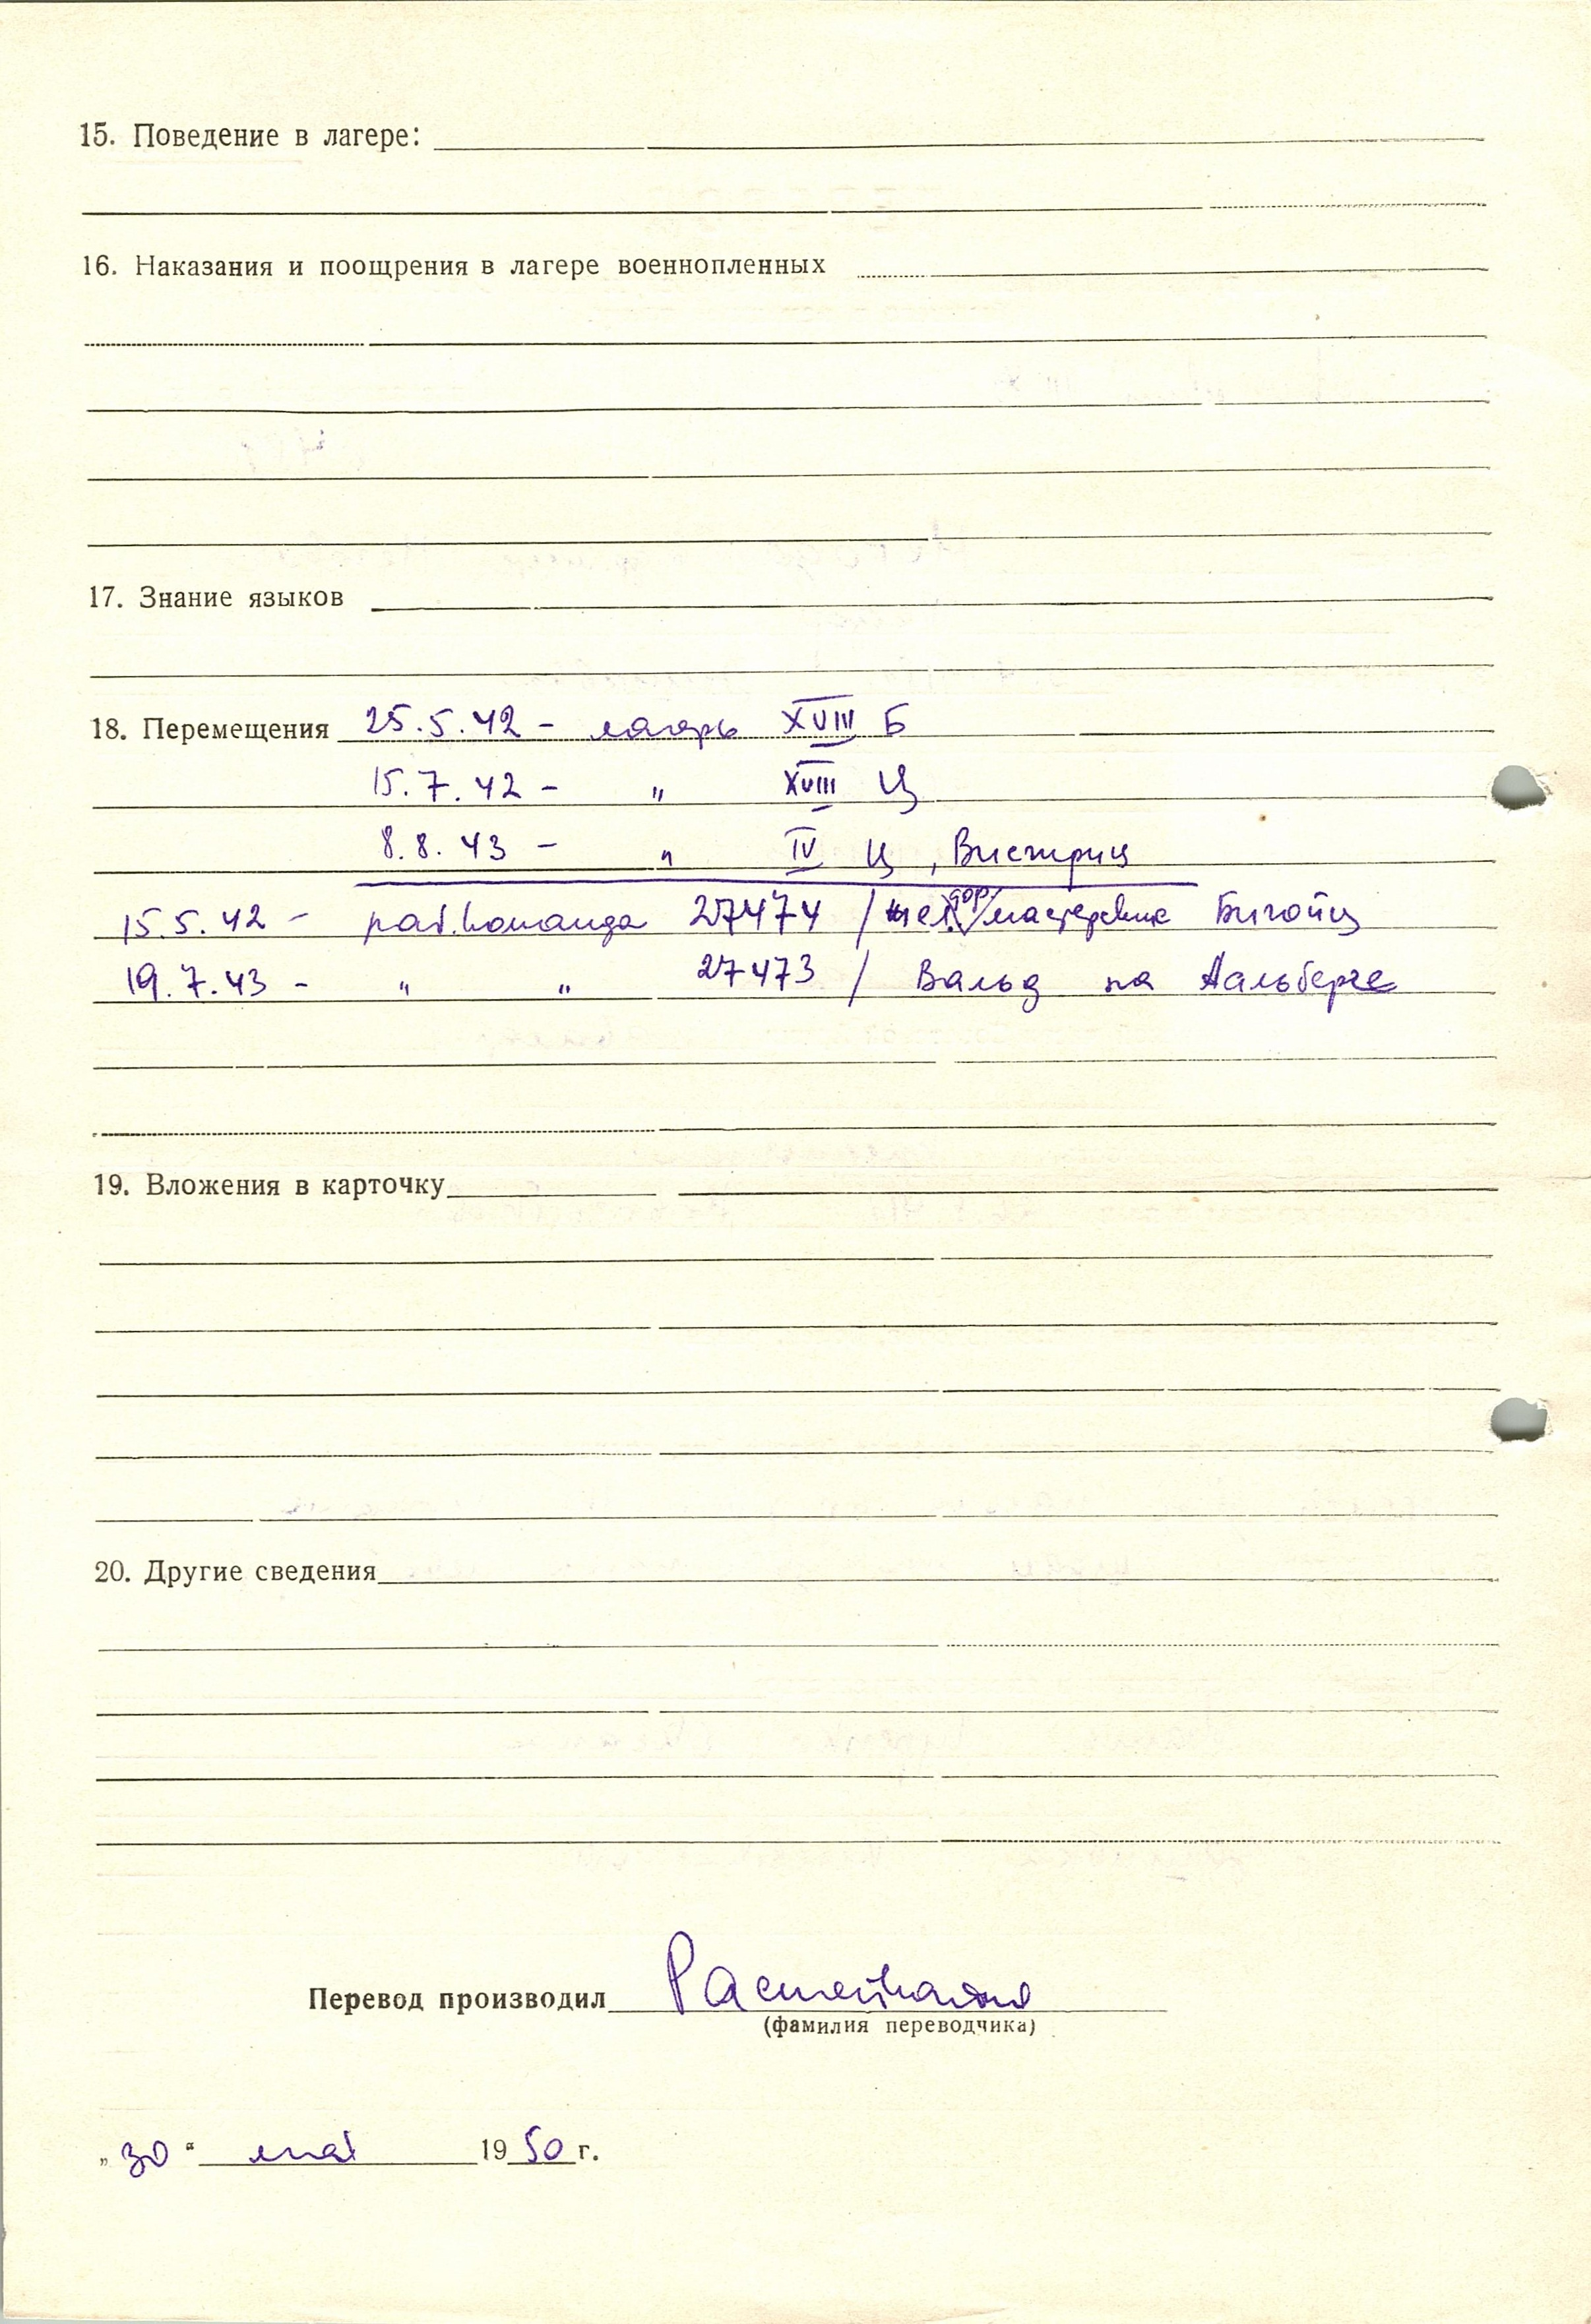 15. Поведение в лагере:
16. Наказания и поощрения в лагере военнопленных
17. Знание языков
18. Перемещения 25.5.42 - лагерь XVIII Б
15.7.42 - " XVIII Ц
8.8.43 - " IV Ц, Вистриц
15.5.42 - раб. команда 27474 / жел. дор. / мастерские Бигойц
19.7.43 - " " 27473 / Вальд на Аальберге
19. Вложения в карточку
20. Другие сведения
Перевод производил
(фамилия переводчика)
„30“ мая 1950 г.